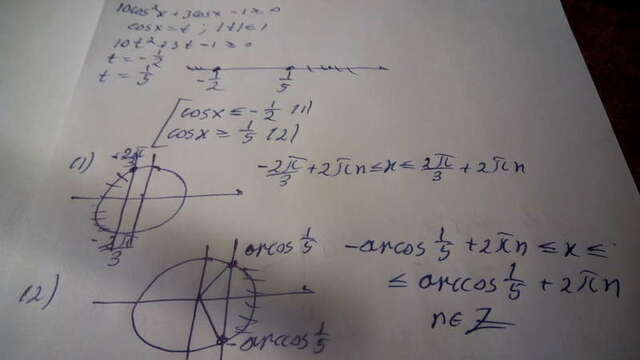 10cos²x + 3cosx - 1 ≥ 0
cosx = t ; |t| ≤ 1
10t² + 3t - 1 ≥ 0
t = -1/2
t = 1/5
-1/2 1/5
[cosx ≤ -1/2 (1)
[cosx ≥ 1/5 (2)
(1) 2π/3 -2π/3 + 2πn ≤ x ≤ 2π/3 + 2πn
-2π/3
(2) arcos 1/5 -arcos 1/5 + 2πn ≤ x ≤
≤ arccos 1/5 + 2πn
-arccos 1/5 n ∈ Z